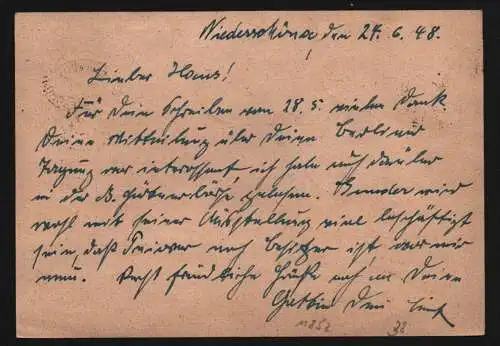 Niederschöna den 24. 6. 48.
Lieber Hans!
Für Dein Schreiben vom 28. 5. vielen Dank.
Deine Mitteilung über Deine Berliner
Tagung war interessant ich habe auch darüber
in der gelesen. wird
wohl mit seiner Ausstellung viel beschäftigt
sein, daß noch Besitzer ist war mir
neu. Recht freundliche Grüße auch an Deine
Gattin Dein